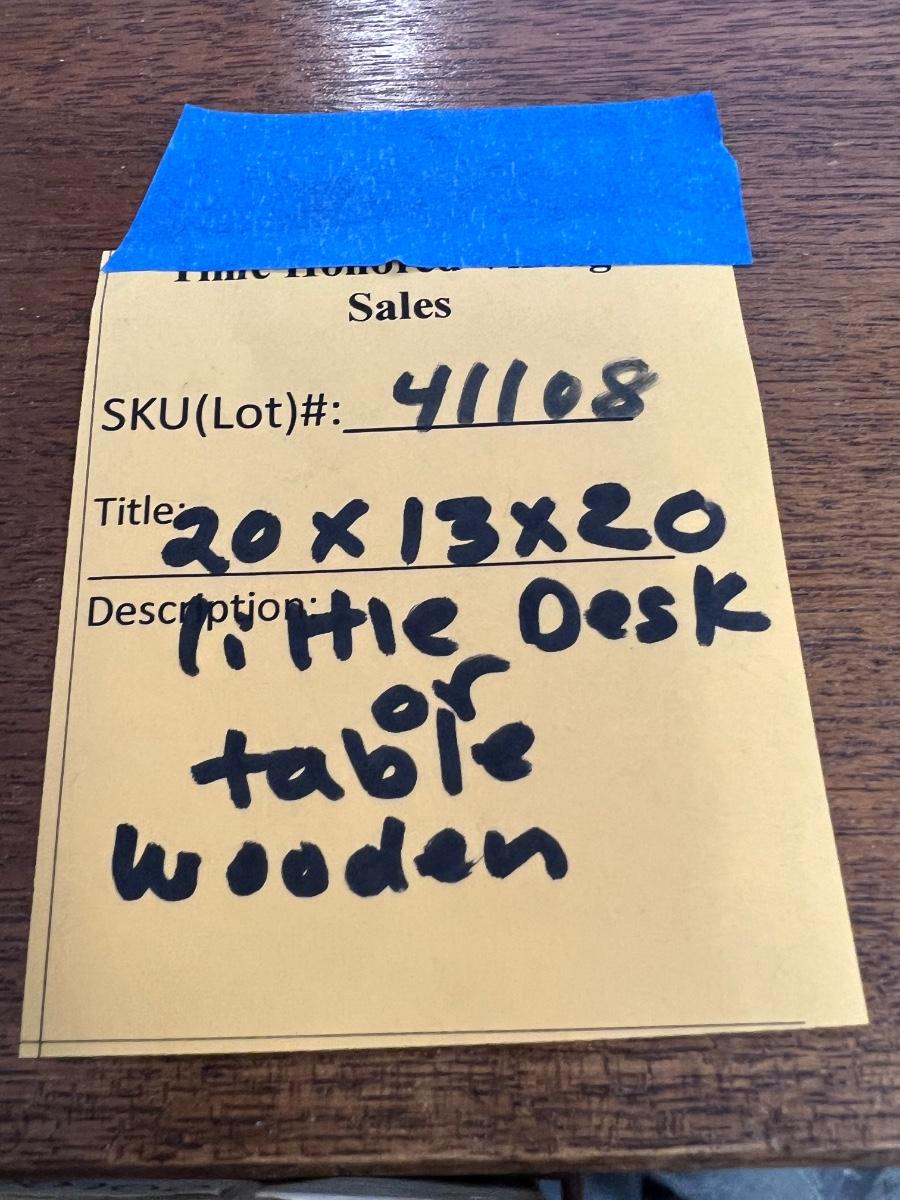 Time Honored
Sales
SKU(Lot)#: 41108
Title: 20 x 13 x 20
Description: little Desk
or
table
wooden